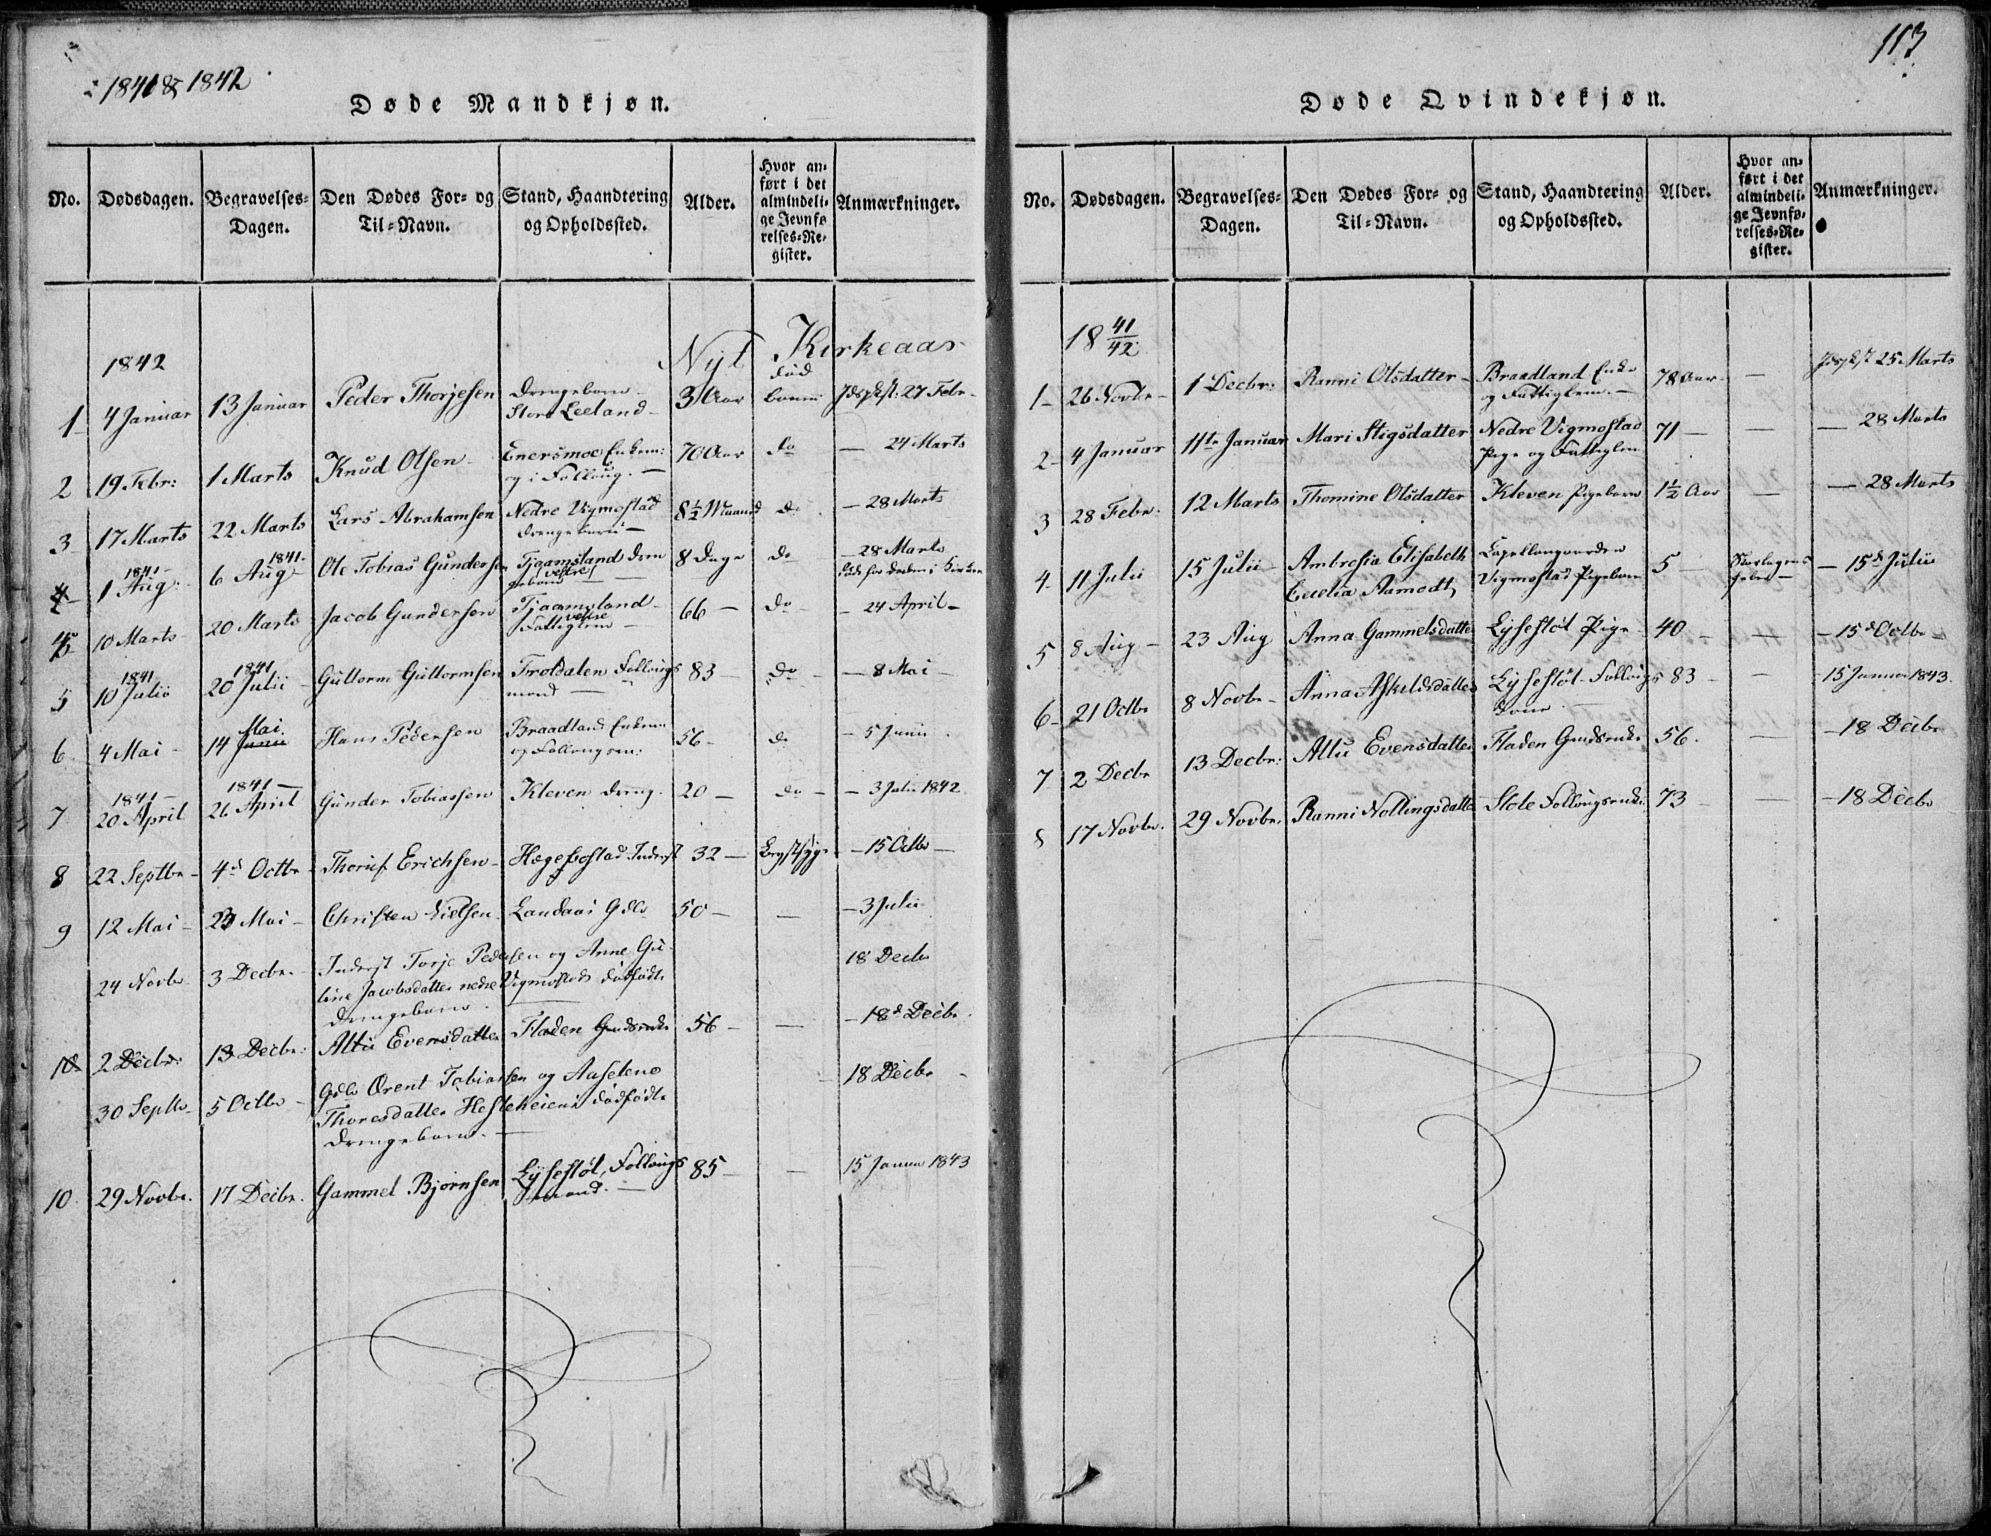 1841 & 1842
Døde Mandkjøn.
No. Dødsdagen. Begravelses-Dagen. Den Dødes For- og Til-Navn. Stand, Haandtering og Opholdssted. Alder. Hvor anført i det almindelige Jevnførelses-Register. Anmærkninger.
1842 Nyt Kirkeaar
1 4 Januar 13 Januar Peder Thorjesen Drengebarn Store Leeland 3 Aar død 27 Febr
2 19 Febr: 1 Marts Knud Olsen Enersmoe Enkem: og i Follaug 70 Aar do 24 Marts
3 17 Marts 22 Marts Lars Abrahamsen Nedre Vigmostad Drengebarn 8½ Maaned do 28 Marts
4 1841 1 Aug. 1841 6 Aug Ole Tobias Gundersen Tjaamsland vestre 8 Dage do 28 Marts
5 10 Marts 20 Marts Jacob Gundersen Tjaamsland vestre Fattiglem 66 do 24 April
5 1841 10 Julii 1841 20 Julii Guttorm Guttormsen Troldalen Follaugsmand 83 do 8 Mai
6 4 Mai 14 Mai Junii Hans Pedersen Braadland Enkem: og Follaugsm: 56 do 5 Junii
7 1841 20 April 1841 26 April Gunder Tobiassen Kleven Dreng 20 do 3 Julii 1842
8 22 Septbr 4de Octbr Thorius Erichsen Hægebostad Inderst 32 Brystsyge 15 Octbr
9 12 Mai 23 Mai Christen Nielsen Landaas Gdbr 50 3 Julii
24 Novbr 3 Decbr. Inderst Torje Pedersen og Anne Gu-
line Jacobsdatter nedre Vigmostads dødfødte
Drengebarn 18 Decbr
10 2 Decbr: 13 Decbr: Altu Evensdatter Fladen Gmdsenke 56 18de Decbr.
30 Septbr 5 Octbr Gdbr Orent Tobiassen og Aaselene
Thoresdatter Hesteheiens dødfødte
Drengebarn. 18 Decbr
10 29 Novbr. 17 Decbr. Gammel Bjørnsen Lysestøl, Follaugsmand 85 15 Januar 1843
113
Døde Qvindekjøn.
No. Dødsdagen. Begravelses-Dagen. Den Dødes For- og Til-Navn. Stand, Haandtering og Opholdssted. Alder. Hvor anført i det almindelige Jevnførelses-Register. Anmærkninger.
18 41/42
1 26 Novbr 1 Decbr: Ranni Olsdatter Braadland Enke og Fattiglem. 78 Aar 25 Marts
2 4 Januar 11te Januar Mari Stigsdatter Nedre Vigmostad Pige og Fattiglem 71 28 Marts
3 28 Febr. 12 Marts Thomine Olsdatter Kleven Pigebarn 1½ Aar 28 Marts
4 11 Julii 15 Julii Ambrosia Elisabeth Cecelia Aamodt Capellangaarden Vigmostad Pigebarn 5 Skarlagensfeber 15de Julii
5 8 Aug 23 Aug Anna Gammelsdatter Lysestøl Pige 40 15de Octbr
6 21 Octbr 8 Novbr Anna Askeldsdatter Lysestøl Follaugskone 83 15 Januar 1843
7 2 Decbr 13 Decbr: Altu Evensdatter Fladen Gmdsenke 56 18 Decbr
8 17 Novbr. 29 Novbr. Ranni Nollingsdatter Stole Follaugsenke 73 18 Decbr